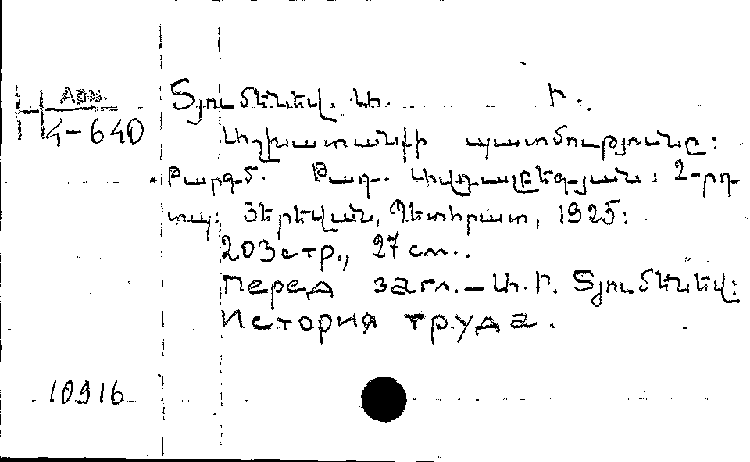 Арм.
Н 4-640
Տյումենեվ. Ա. Ի.
Աշխատանքի պատմությունը:
Թարգմ. Թադ. Ավդալբեգյան: 2-րդ
տպ: Յերեվան, Պետհրատ, 1925:
203стр., 27см..
Перед загл.–Ա. Ի. Տյումենեվ:
История труда.
10916